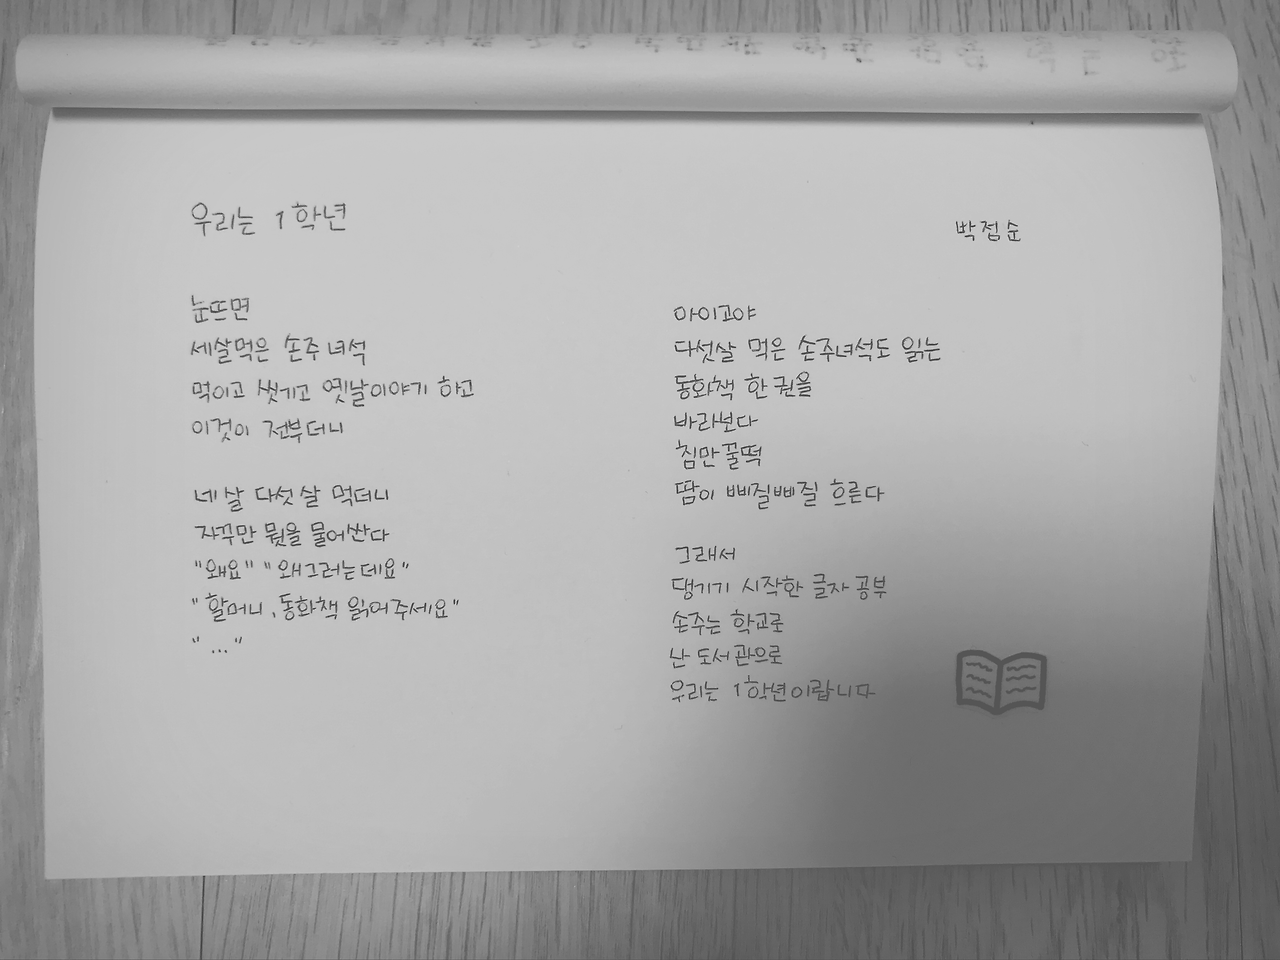 우리는 1학년
박점순
눈뜨면
세살먹은 손주 녀석
먹이고 씻기고 옛날이야기 하고
이것이 전부더니
네살 다섯살 먹더니
자꾸만 뭣을 물어싼다
"왜요" "왜그러는데요"
"할머니, 동화책 읽어주세요"
"..."
아이고야
다섯살 먹은 손주녀석도 읽는
동화책 한권을
바라보다
침만꿀떡
땀이 삐질삐질 흐른다
그래서
댕기기 시작한 글자 공부
손주는 학교로
난 도서관으로
우리는 1학년이랍니다